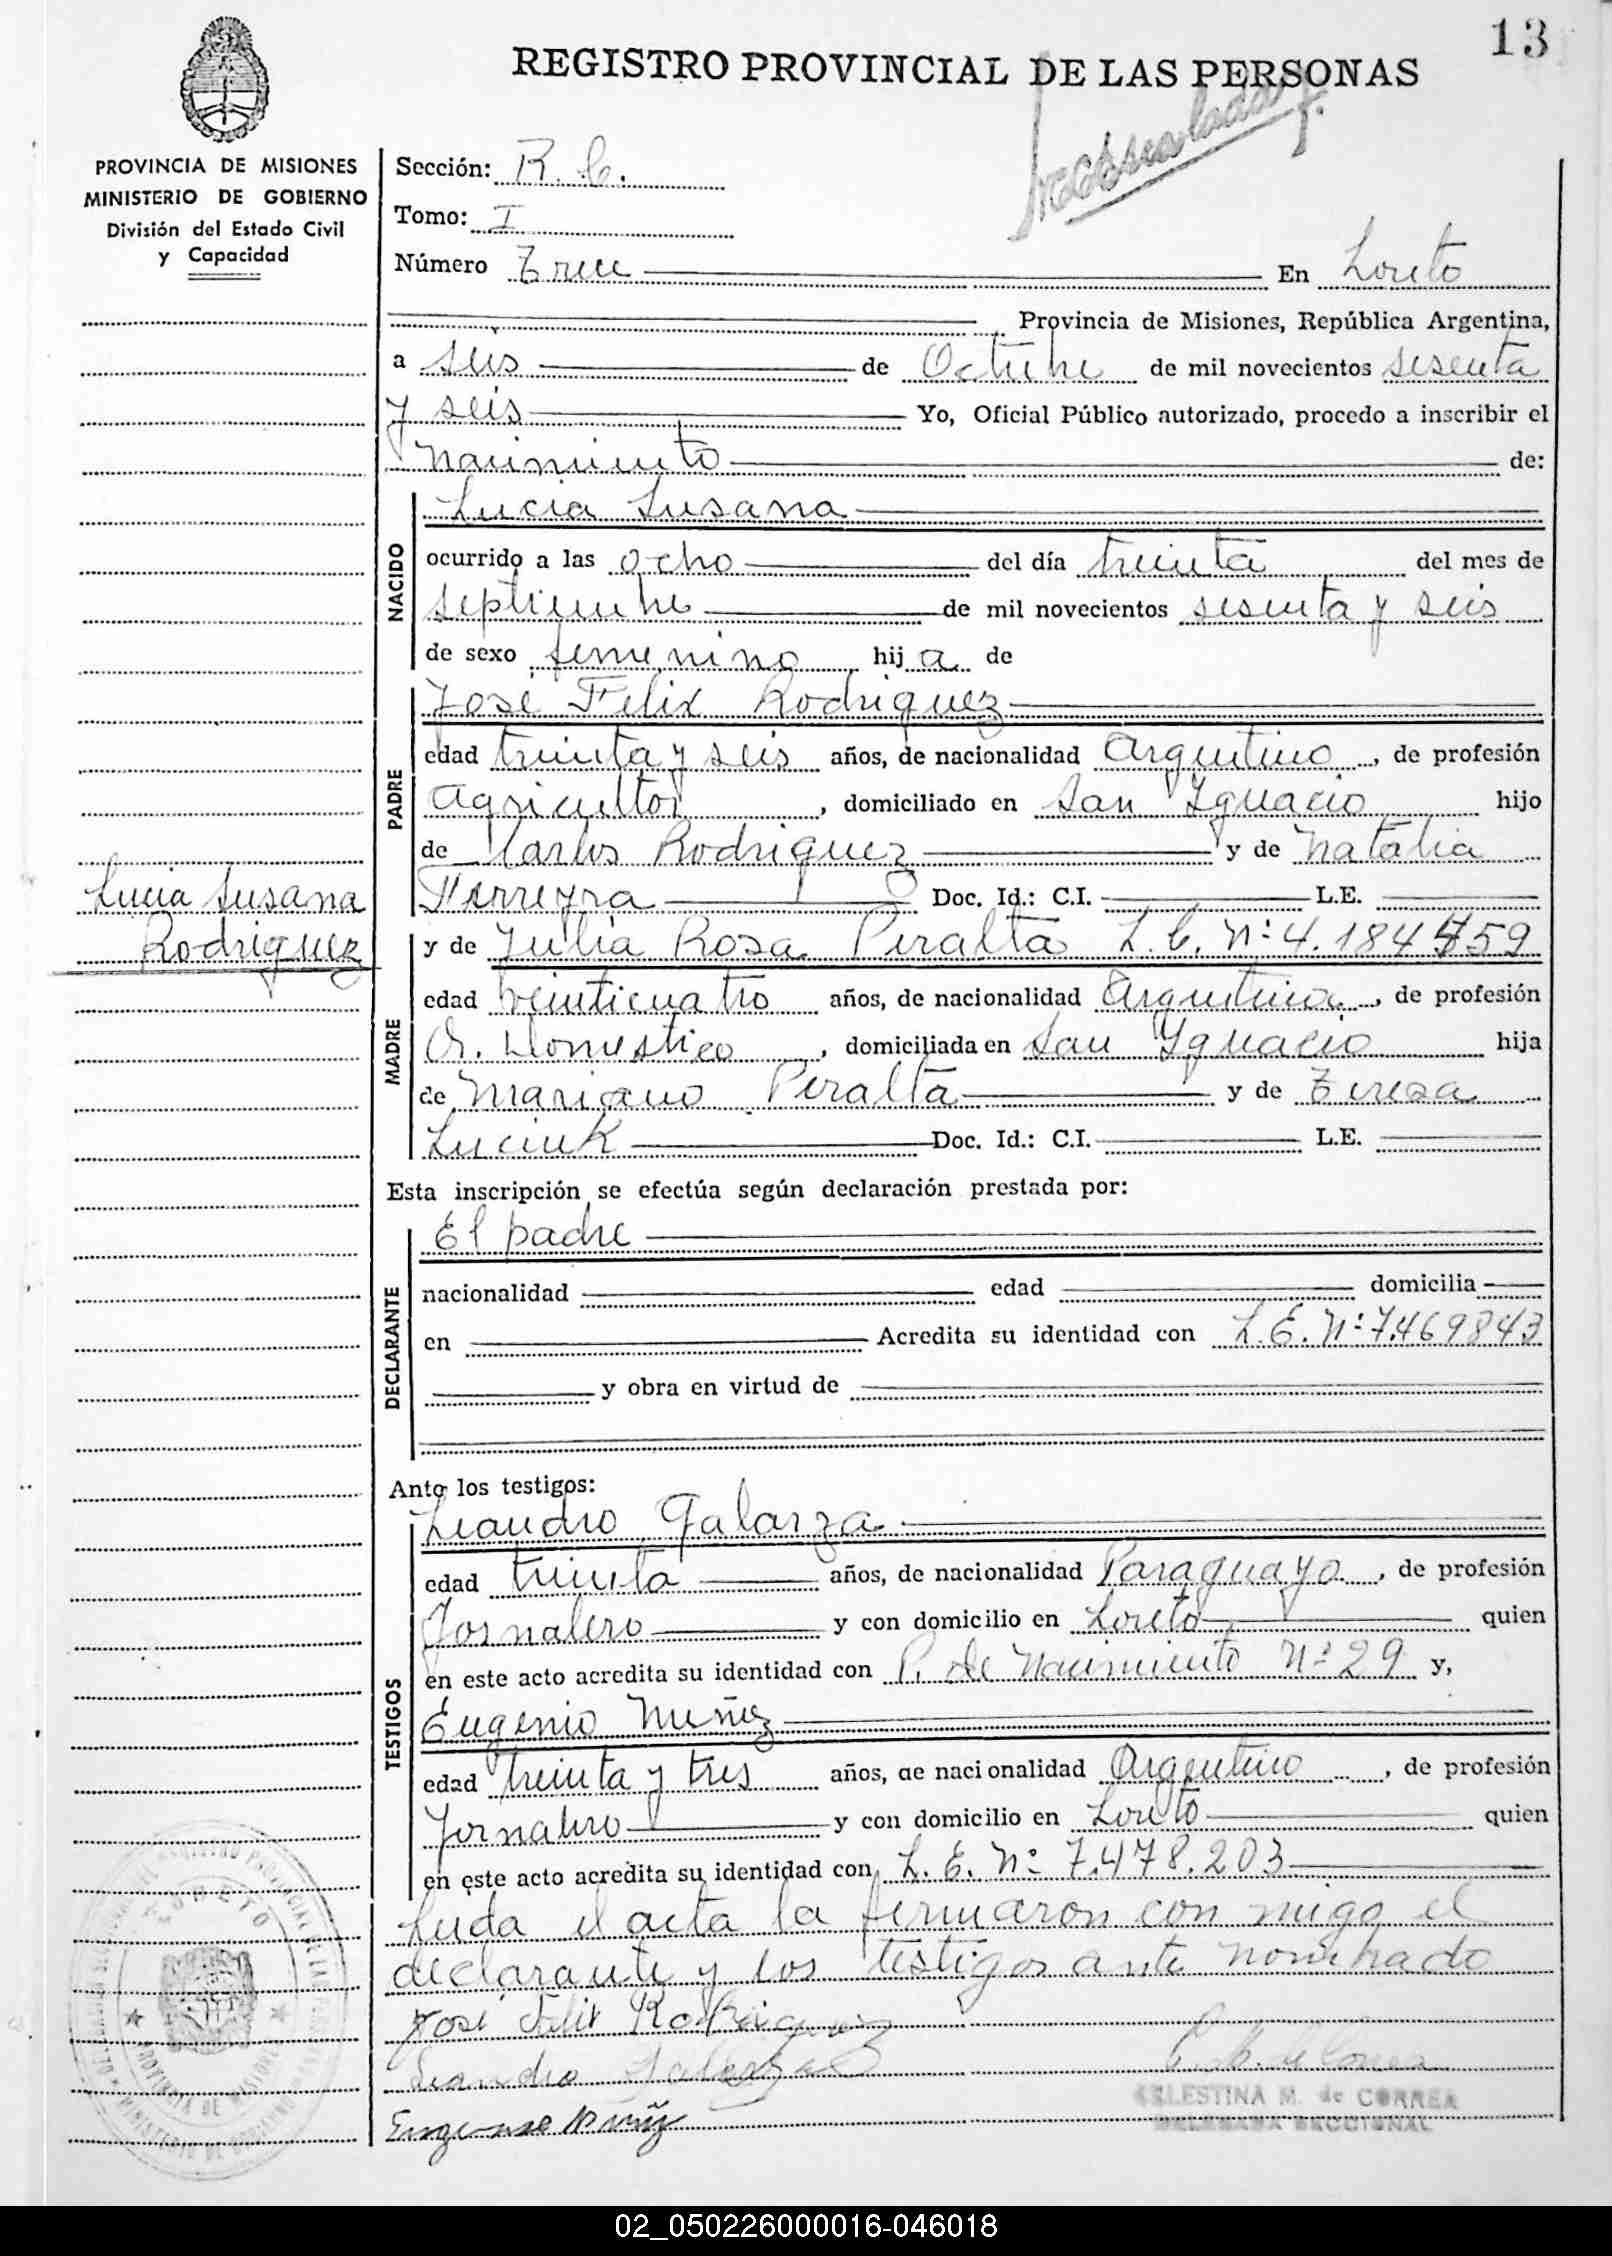 13
REGISTRO PROVINCIAL DE LAS PERSONAS
PROVINCIA DE MISIONES
MINISTERIO DE GOBIERNO
División del Estado Civil
y Capacidad
Sección: R. C.
Tomo: I
Número Trece En Loreto
Provincia de Misiones, República Argentina,
a seis de Octubre de mil novecientos sesenta
y seis Yo, Oficial Público autorizado, procedo a inscribir el
Nacimiento de:
NACIDO
Lucia Susana
ocurrido a las ocho del día treinta del mes de
septiembre de mil novecientos sesenta y seis
de sexo femenino hija de
PADRE
José Felix Rodriguez
edad treinta y seis años, de nacionalidad Argentino, de profesión
Agricultor, domiciliado en San Ignacio hijo
de Carlos Rodriguez y de Natalia
Ferreyra Doc. Id.: C.I. L.E.
Lucia Susana
Rodriguez
MADRE
y de Julia Rosa Peralta L.C. Nº 4.184.759
edad veinticuatro años, de nacionalidad Argentina, de profesión
Q. Domestico, domiciliada en San Ignacio hija
de Mariano Peralta y de Teresa
Luciuk Doc. Id.: C.I. L.E.
Esta inscripción se efectúa según declaración prestada por:
DECLARANTE
El padre
nacionalidad edad domicilia
en Acredita su identidad con L.E. Nº 7.469843
y obra en virtud de
Ante los testigos:
TESTIGOS
Leandro Galarza
edad treinta años, de nacionalidad Paraguayo, de profesión
Jornalero y con domicilio en Loreto quien
en este acto acredita su identidad con P. de Nacimiento Nº 29 y,
Eugenio Nuñez
edad treinta y tres años, de nacionalidad Argentino, de profesión
Jornalero y con domicilio en Loreto quien
en este acto acredita su identidad con L.E. Nº 7.478.203
Leida el acta la firmaron con migo el
declarante y los testigos ante nombrado
José Felix Rodriguez
Leandro Galarza
CELESTINA M. de CORREA
DELEGADA SECCIONAL
LORETO
PROVINCIA DE MISIONES
02_050226000016-046018